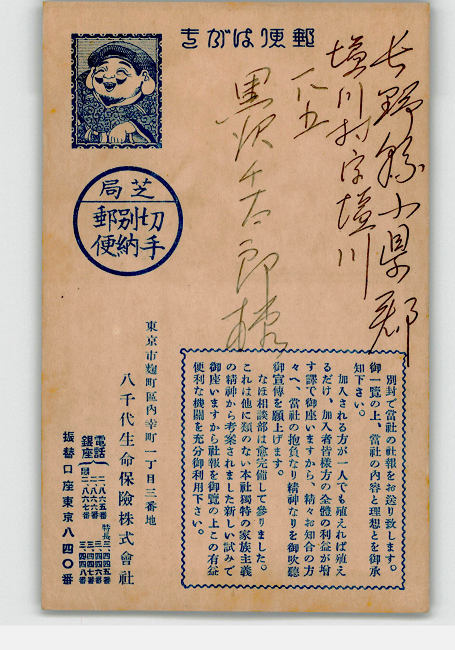 郵便はがき
長野縣小県郡
塩川村字塩川
一八五
黒沢千太郎様
芝局
切手
別納
郵便
別封で當社の社報をお送り致します。
御一覽の上、當社の内容と理想とを御承
知下さい。
加入される方が一人でも殖えれば殖え
るだけ、加入者皆樣方の全體の利益が增
す譯で御座いますから、精々お知合の方
々へ、當社の抱負なり精神なりを御吹聽
御宣傳を願上げます。
なほ相談部は愈完備して參りました。
これは他に類のない本社獨特の家族主義
の精神から考案されました新しい試みで
御座いますから社報を御覽の上この有益
便利な機關を充分御利用下さい。
東京市麴町區内幸町一丁目三番地
八千代生命保險株式會社
電話
銀座
二、八六五番
二、八六六番
二、八六七番
特長
三、四四五番
三、四四六番
三、四四八番
振替口座東京八四〇番